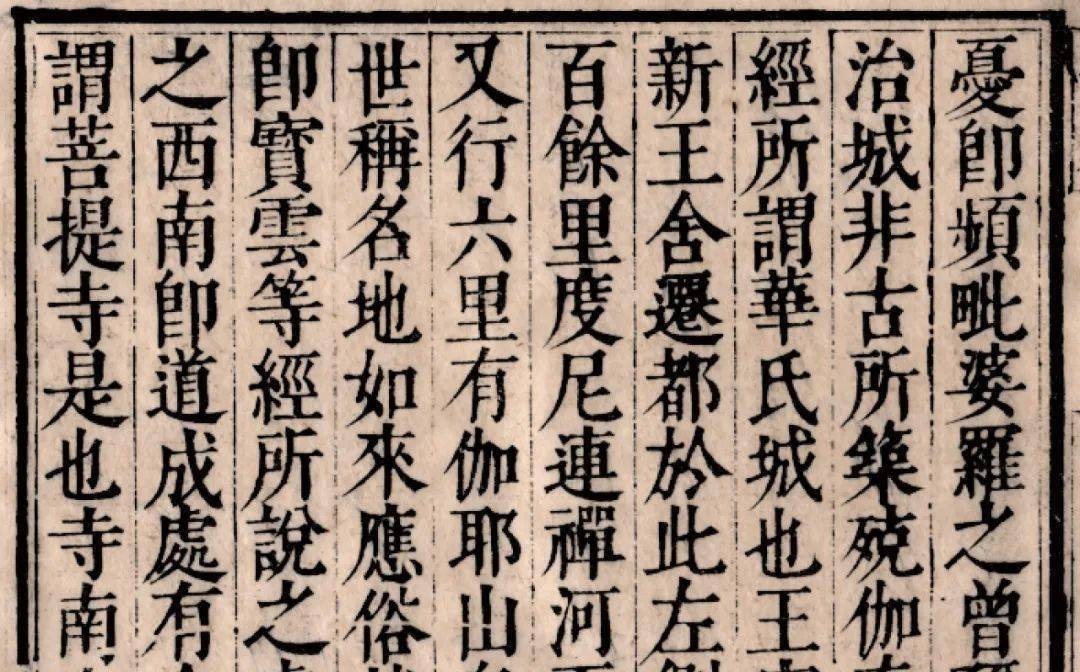 憂即頻毗婆羅之曾
治城非古所築殑伽
經所謂華氏城也王
新王舍遷都於此左
百餘里度尼連禪河
又行六里有伽耶山
世稱名地如來應俗
即寶雲等經所說之
之西南即道成處有
謂菩提寺是也寺南